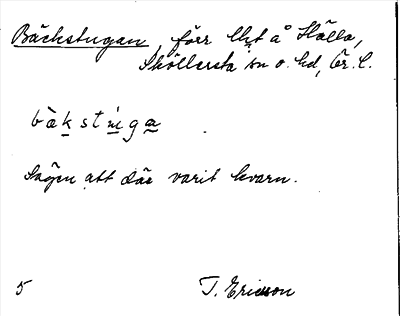 Bäckstugan, förr lht å Hälla,
Sköllersta sn o. hd, Ör. l.
bàkstʹiga
Sägen att där varit kvarn.
5 T. Ericson